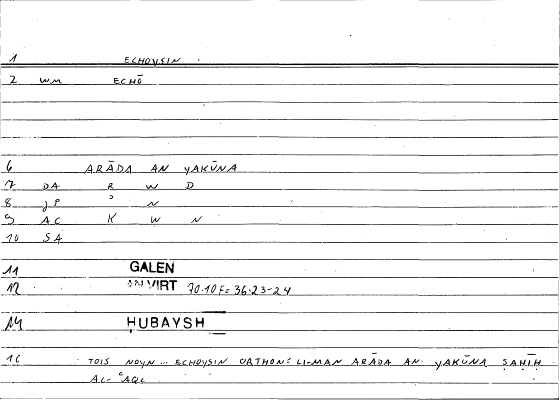 1 ECHOYSIN
2 WM ECHŌ
6 ARĀDA AN YAKŪNA
7 DA R W D
8 JP ʾ N
9 AC K W N
10 SA
11 GALEN
12 AN VIRT 70.10 F = 36.23-24
14 ḤUBAYSH
16 TOIS NOYN ... ECHOYSIN ORTHON = LI-MAN ARĀDA AN YAKŪNA ṢAḤĪḤ
AL-ʿAQL